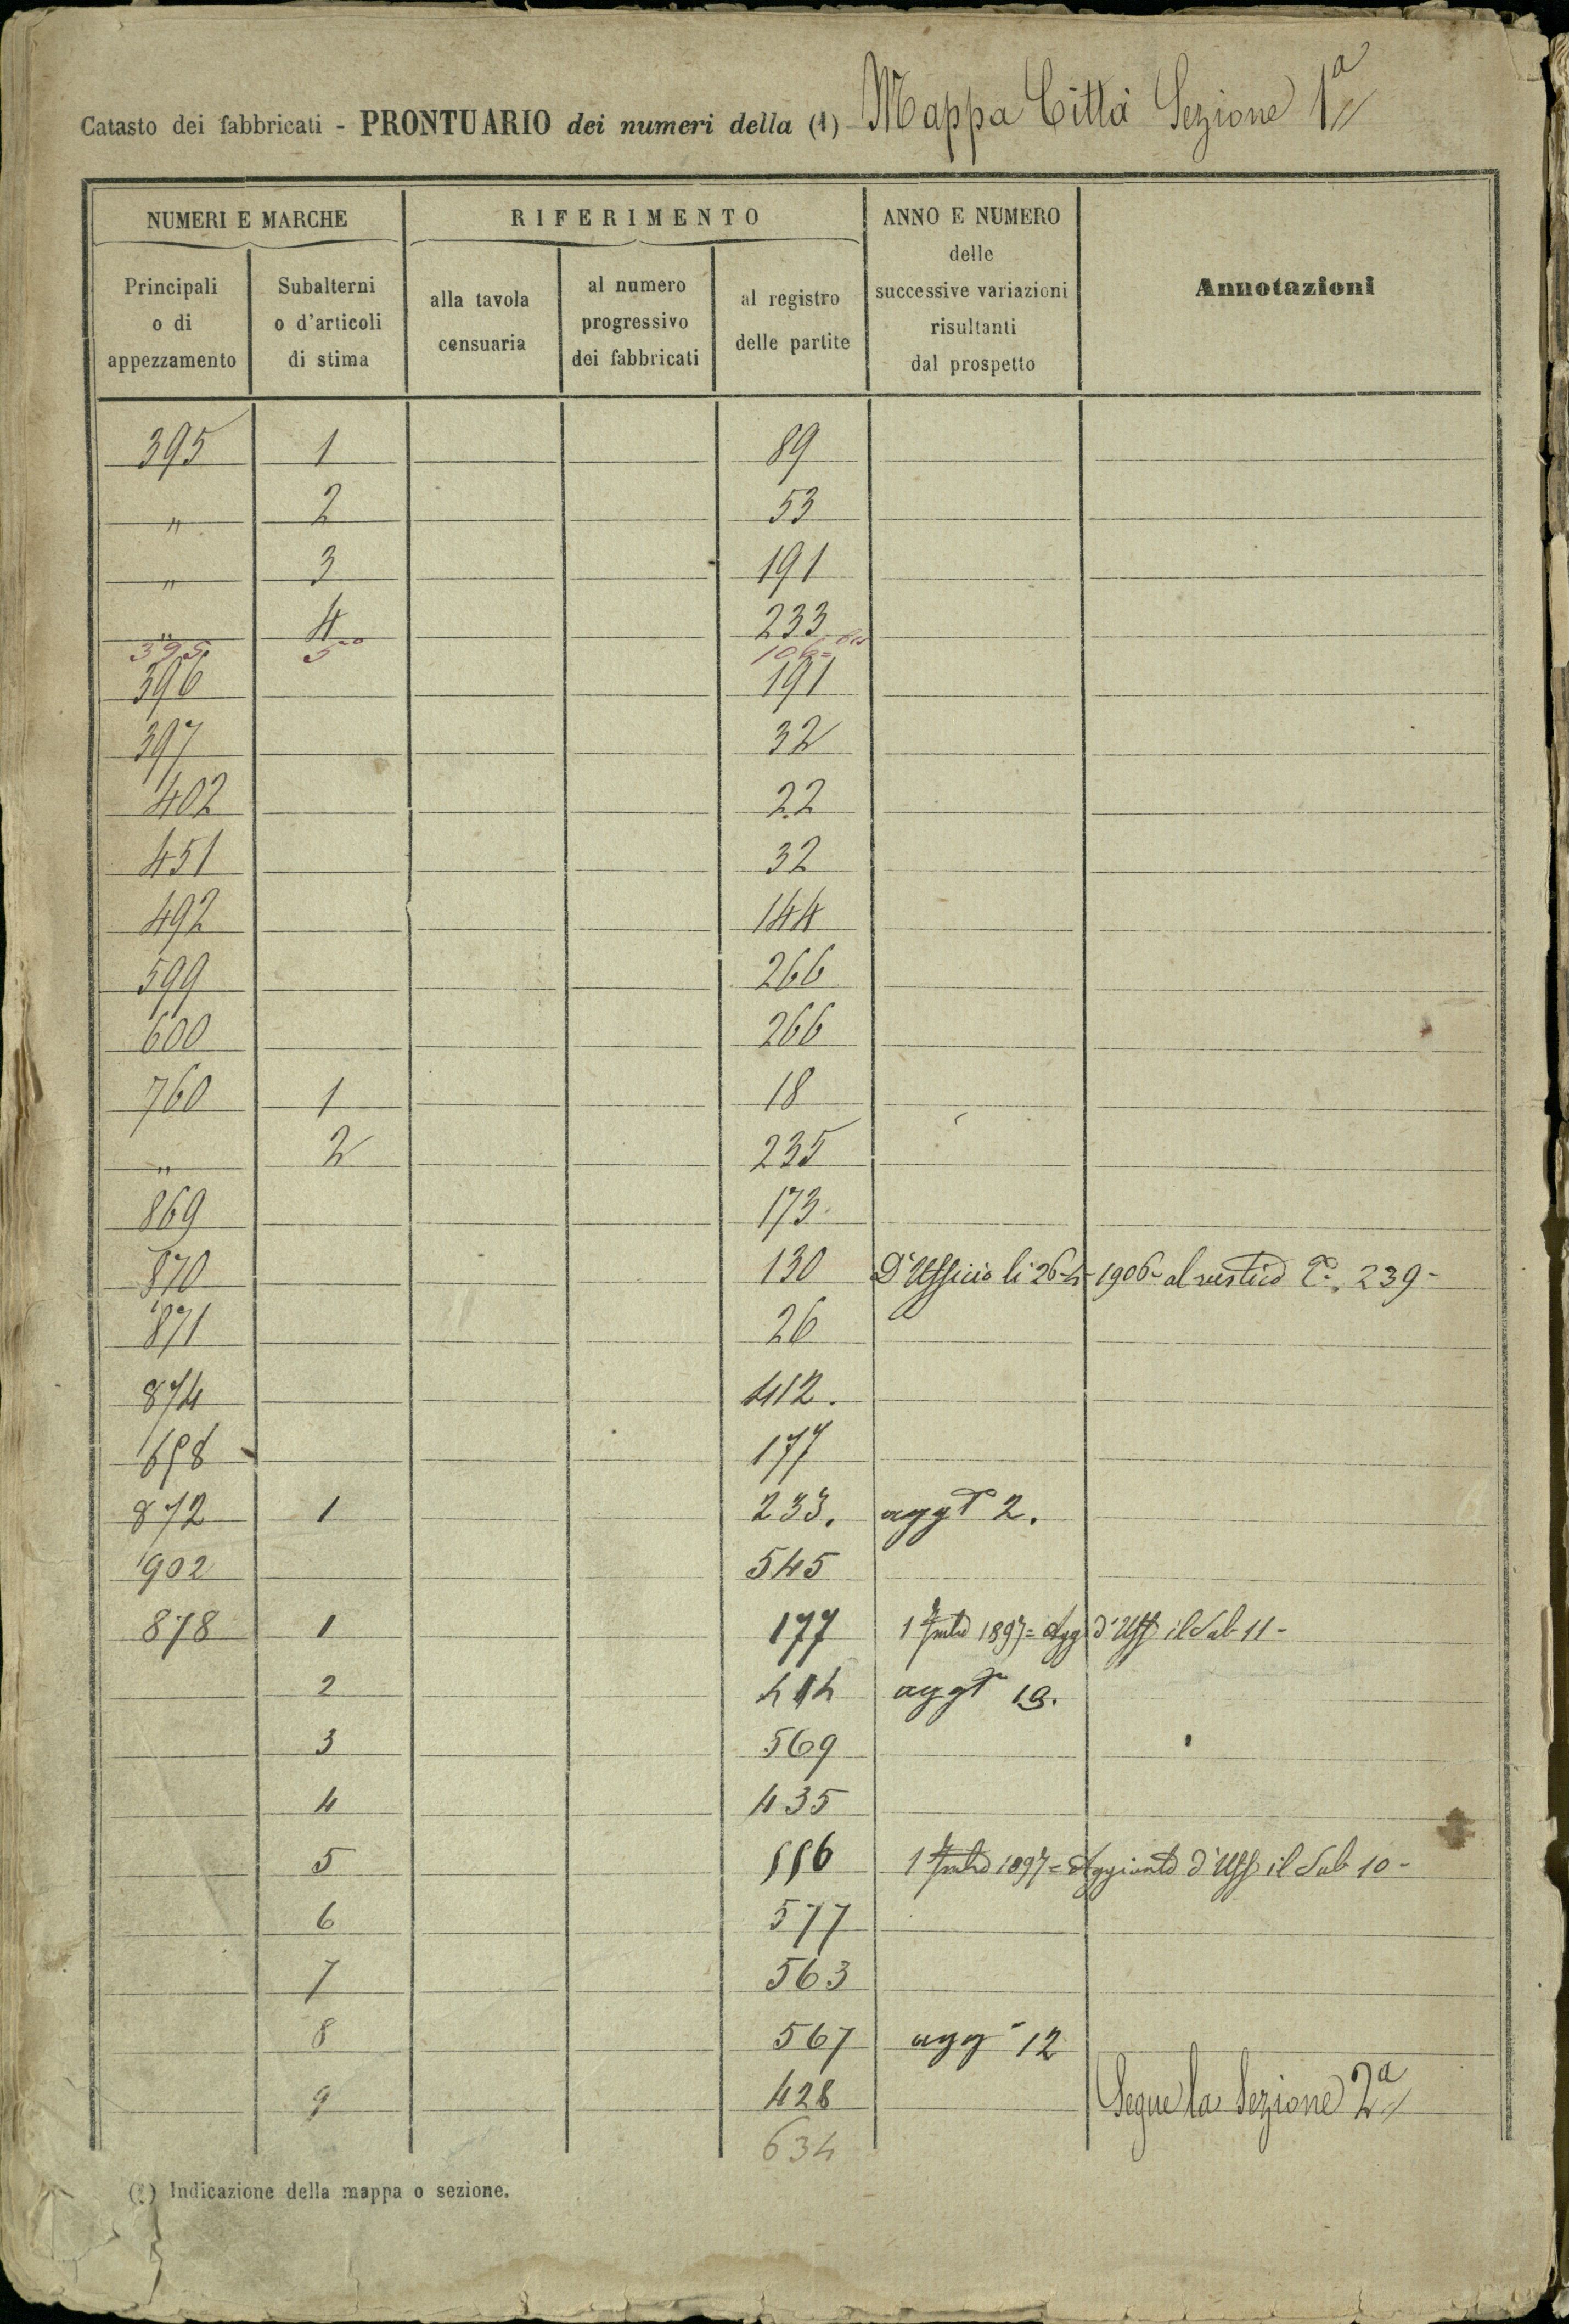 Catasto dei fabbricati - PRONTUARIO dei numeri della (1) Mappa Città Sezione 1ª
NUMERI E MARCHE
RIFERIMENTO
ANNO E NUMERO
delle
successive variazioni
risultanti
dal prospetto
Annotazioni
Principali
o di
appezzamento
Subalterni
o d'articoli
di stima
alla tavola
censuaria
al numero
progressivo
dei fabbricati
al registro
delle partite
395 1 89
" 2 53
" 3 191
" 4 233
395 5 106 bis
396 191
397 32
402 22
451 32
492 144
599 266
600 266
760 1 18
" 2 235
869 173
870 130 D'Ufficio li 26-4-1906 al 239-
871 26
874 412.
658 177
872 1 233. aggt 2.
902 545
878 1 177 1 1897 = Agg d'Uff il Sub 11-
2 414 aggt 13.
3 569
4 435
5 556 1 1897 = Aggiunto d'Uff il Sub 10-
6 577
7 563
8 567 agg 12
9 428 Segue la Sezione 2ª
634
(1) Indicazione della mappa o sezione.